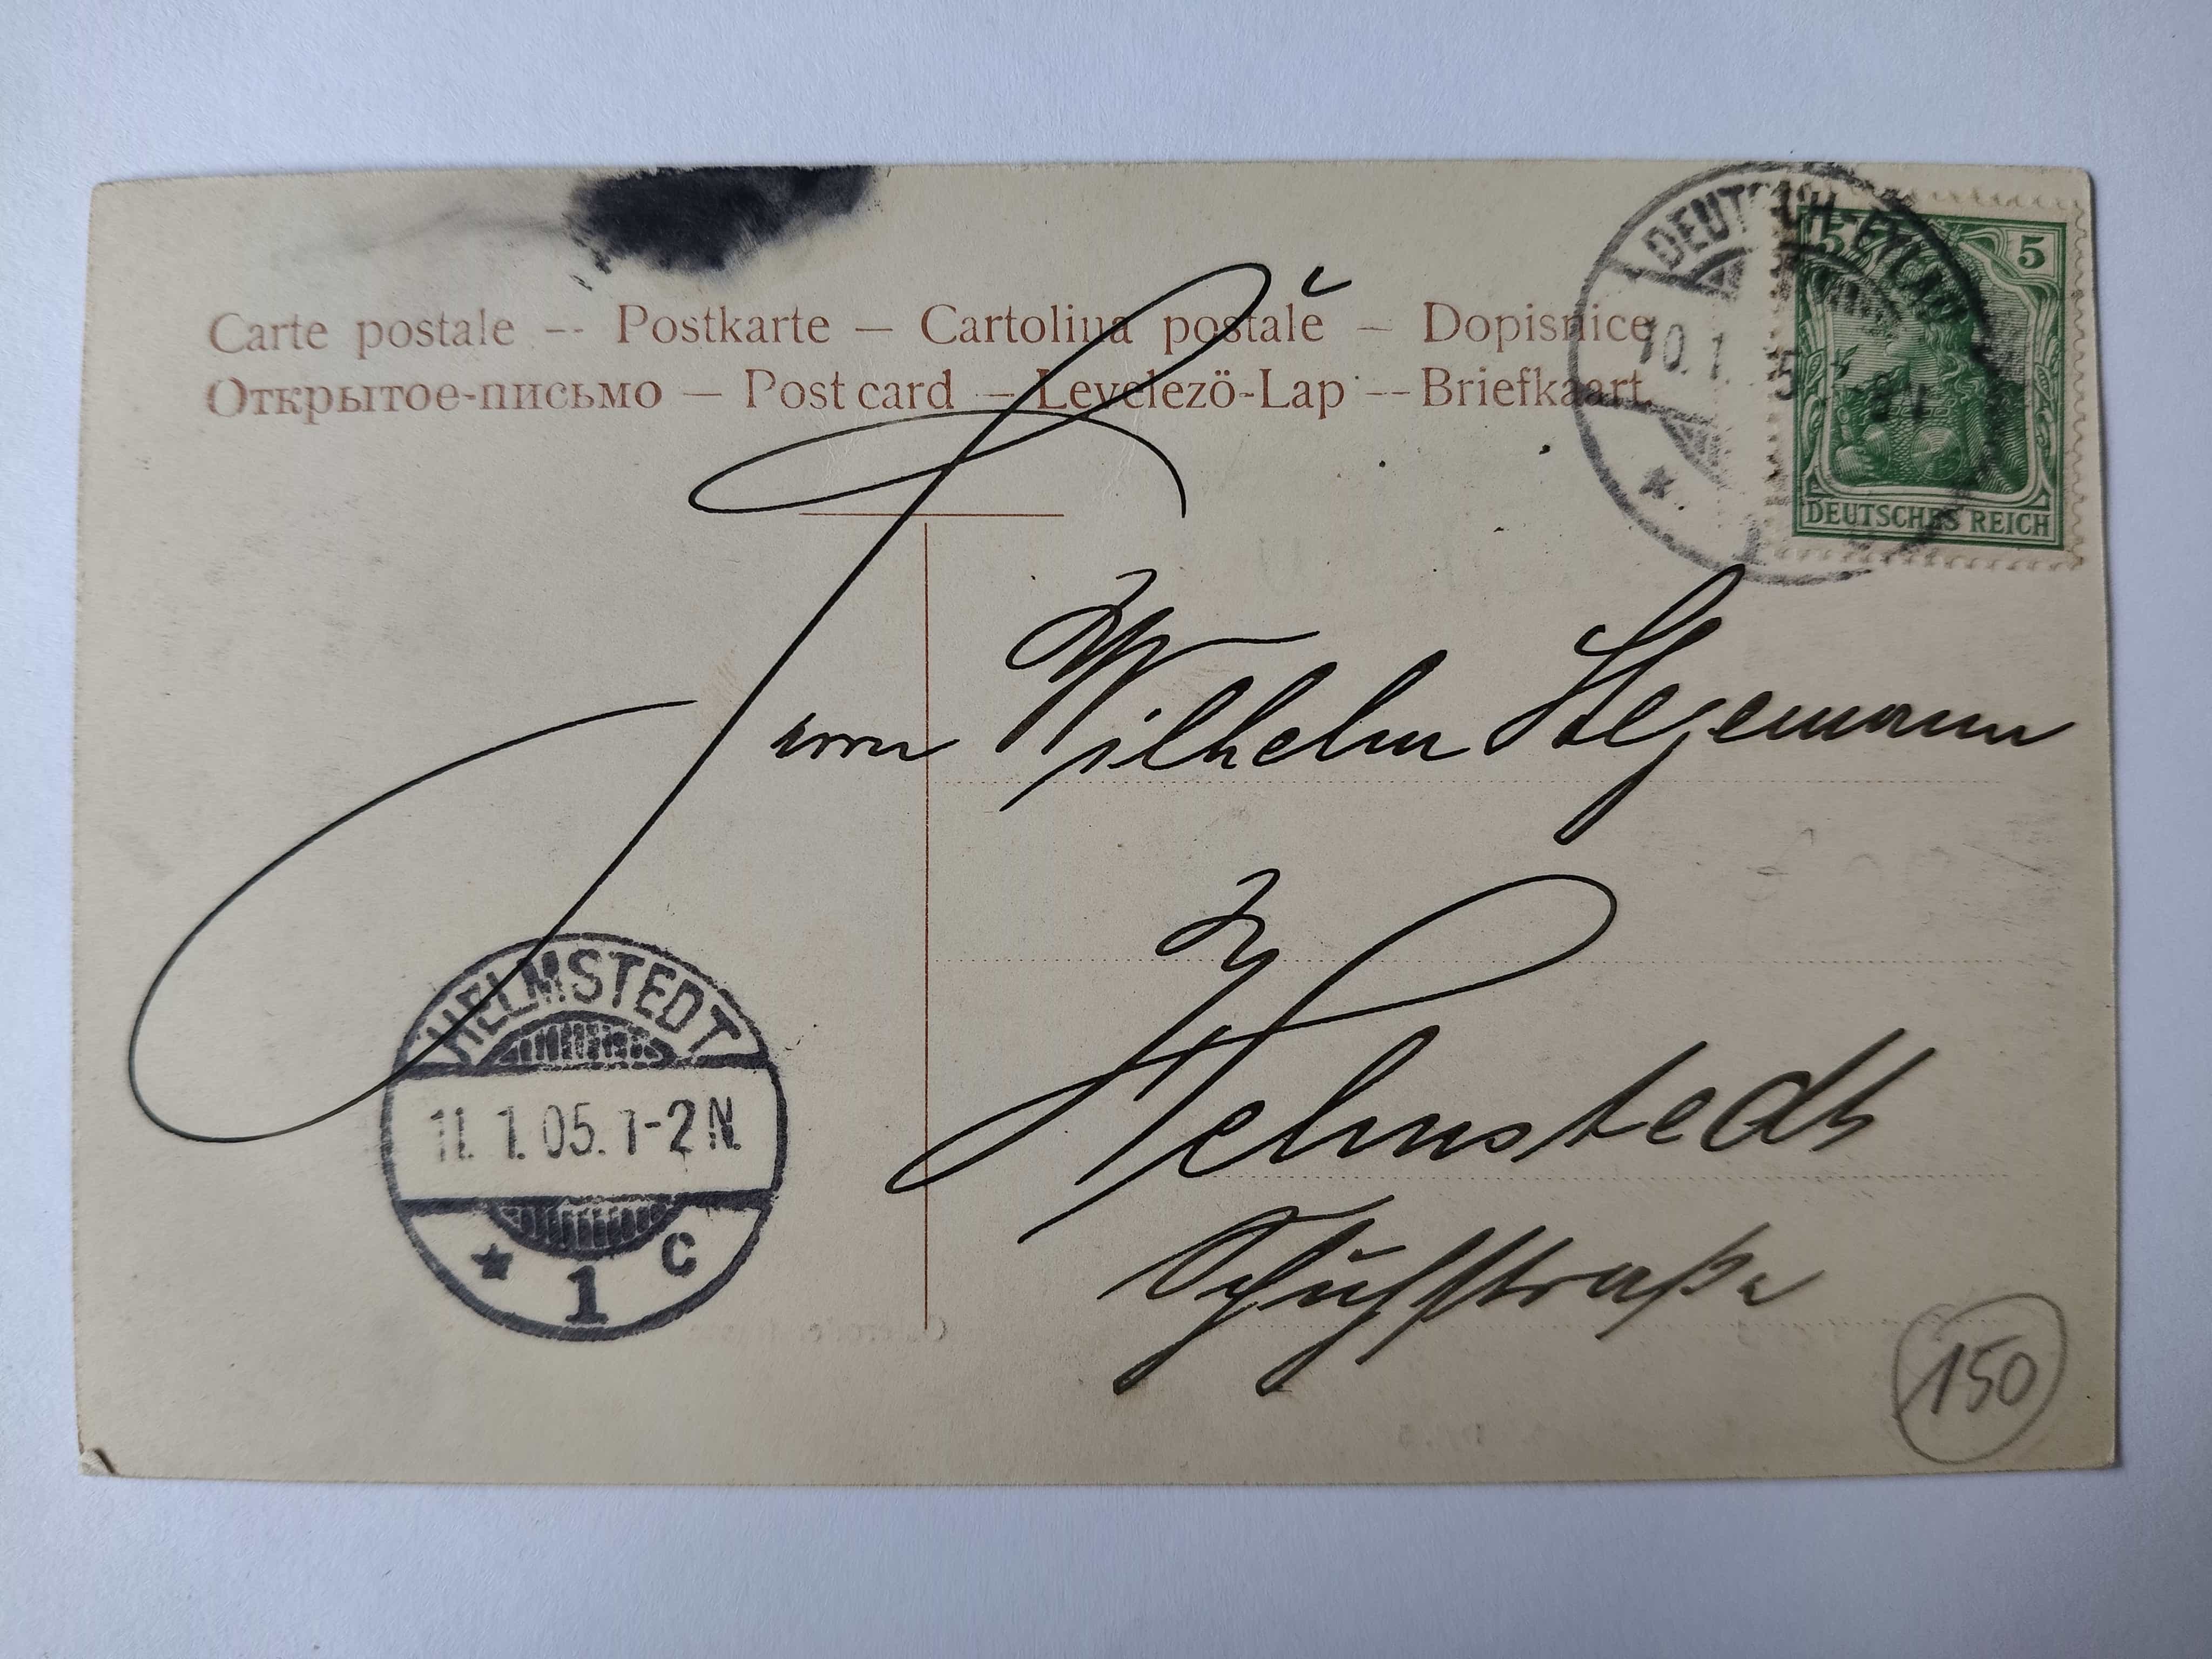 Carte postale -- Postkarte — Cartolina postale — Dopisnice
Открытое-письмо — Post card — Levelezö-Lap -- Briefkaart.
DEUTSCH-EYLAU
10.1. 5
5
DEUTSCHES REICH
Herrn Wilhelm Hegemann
Helmstedt
HELMSTEDT
11. 1. 05. 1-2 N.
* 1 c
150